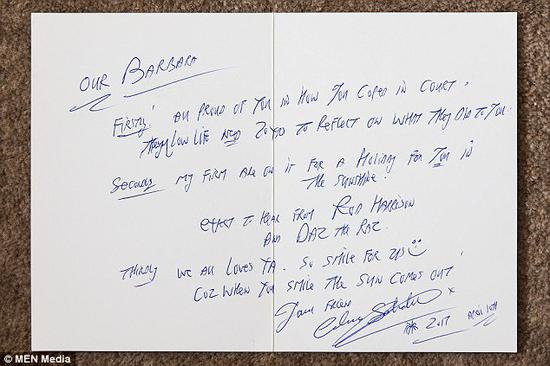 OUR BARBARA
Firstly! All proud of you in how you coped in court.
They low life need 20 yrs to reflect on what they did to you.
Secondly my firm are on it for a holiday for you in
the sunshine!
expect to hear from Rod Harrison
and Daz the Raz.
Thirdly we all loves ya. So smile for us
coz when you smile the sun comes out!
Your friend
x
2017 April 10th
© MEN Media